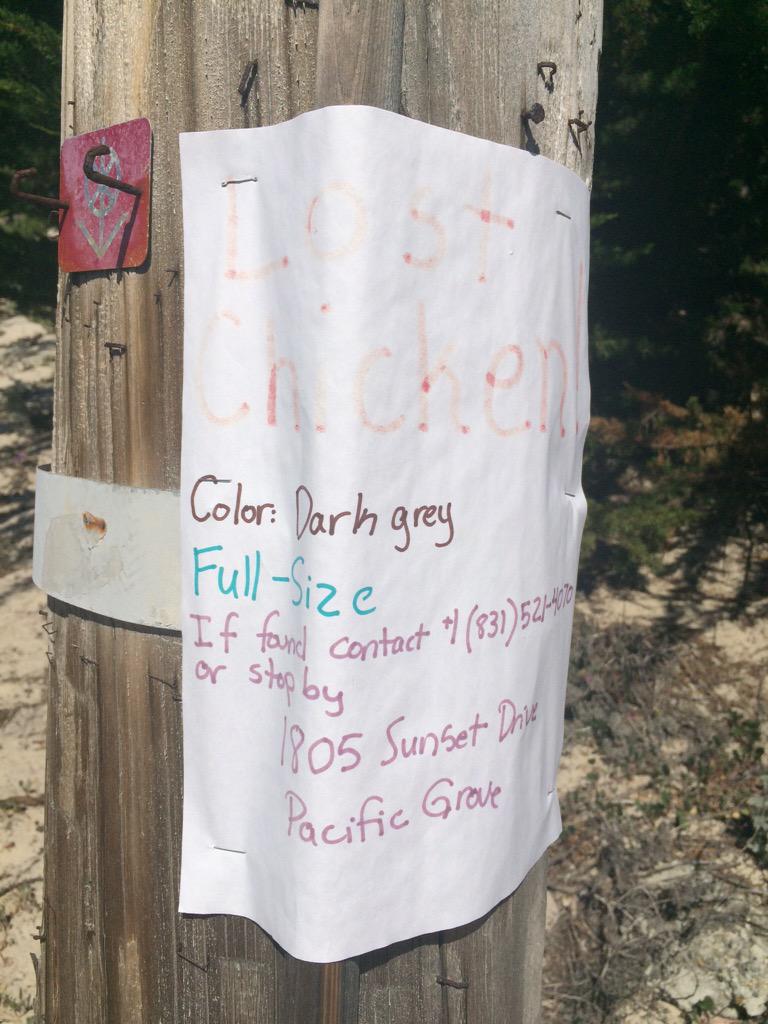 Lost
Chicken!
Color: Dark grey
Full-Size
If found contact +1 (831) 521-4070
or stop by
1805 Sunset Drive
Pacific Grove